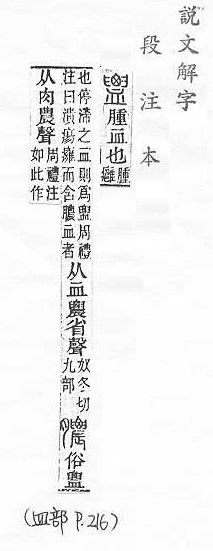 説文解字
段注本
𧗕腫血也腫癰
也停滯之血則爲𧗕周禮
注曰潰瘍癰而含膿血者
从血農省聲奴冬切九部膿俗𧗕
从肉農聲周禮注如此作
(血部 P.216)